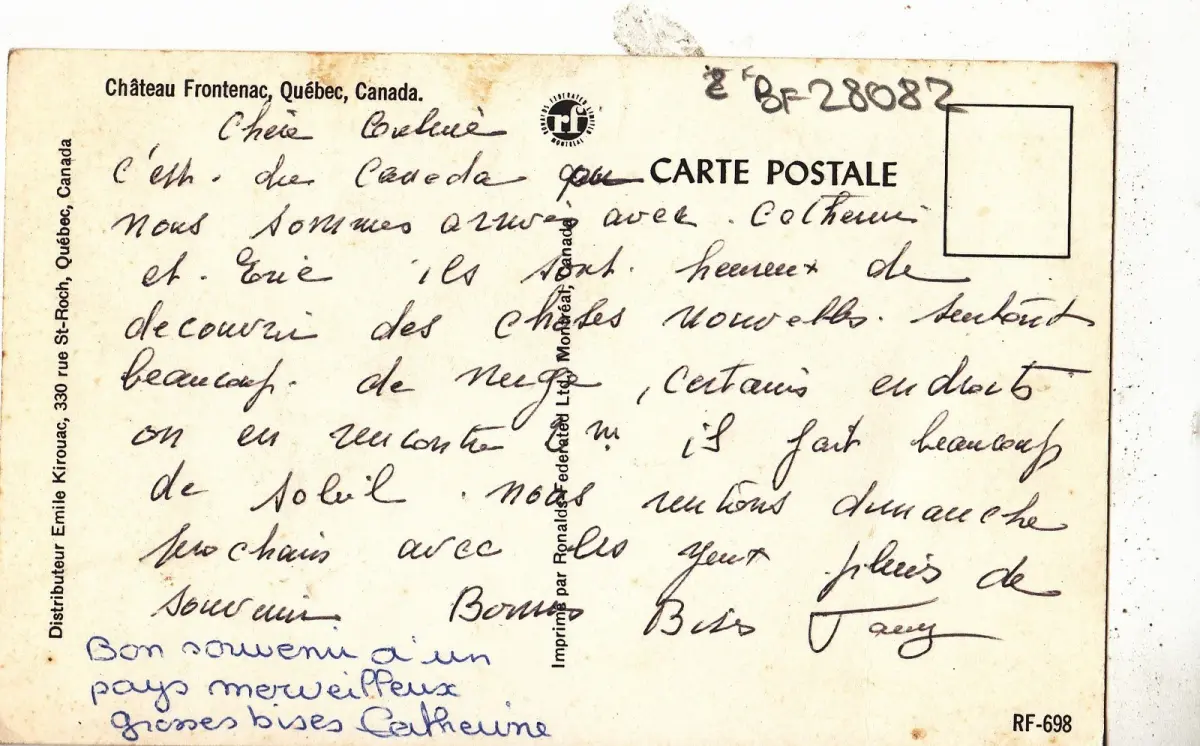 Château Frontenac, Québec, Canada.
BF 28082
RONALDS FEDERATED LIMITED
rf
MONTREAL
CARTE POSTALE
Chère
c'est. du Canada que
nous sommes arrivés avec. Catherine
et. Eric ils sont. heureux de
decouvrir des choses nouvelles. surtout
beaucoup. de neige, certains endroits
on en rencontre 2 m il fait beaucoup
de soleil. nous rentrons dimanche
prochain avec les yeux pleins de
souvenir Bonnes Bises
Bon souvenir d'un
pays merveilleux
grosses bises Catherine
Distributeur Emile Kirouac, 330 rue St-Roch, Québec, Canada
Imprimé par Ronalds-Federated Ltd., Montréal, Canada
RF-698